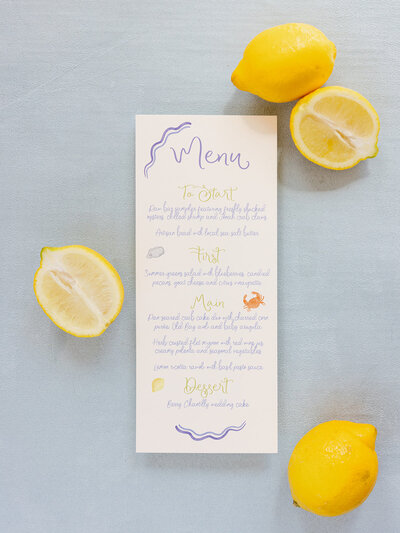 Menu
To Start
Raw bar sampler featuring freshly shucked
oysters, chilled shrimp and Jonah crab claws
Artisan bread with local sea salt butter
First
Summer greens salad with blueberries, candied
pecans, goat cheese and citrus vinaigrette
Main
Pan seared crab cake duo with charred corn
purée, Old Bay aioli and baby arugula
Herb crusted filet mignon with red wine jus,
creamy polenta and seasonal vegetables
Lemon ricotta ravioli with basil pesto sauce
Dessert
Berry Chantilly wedding cake